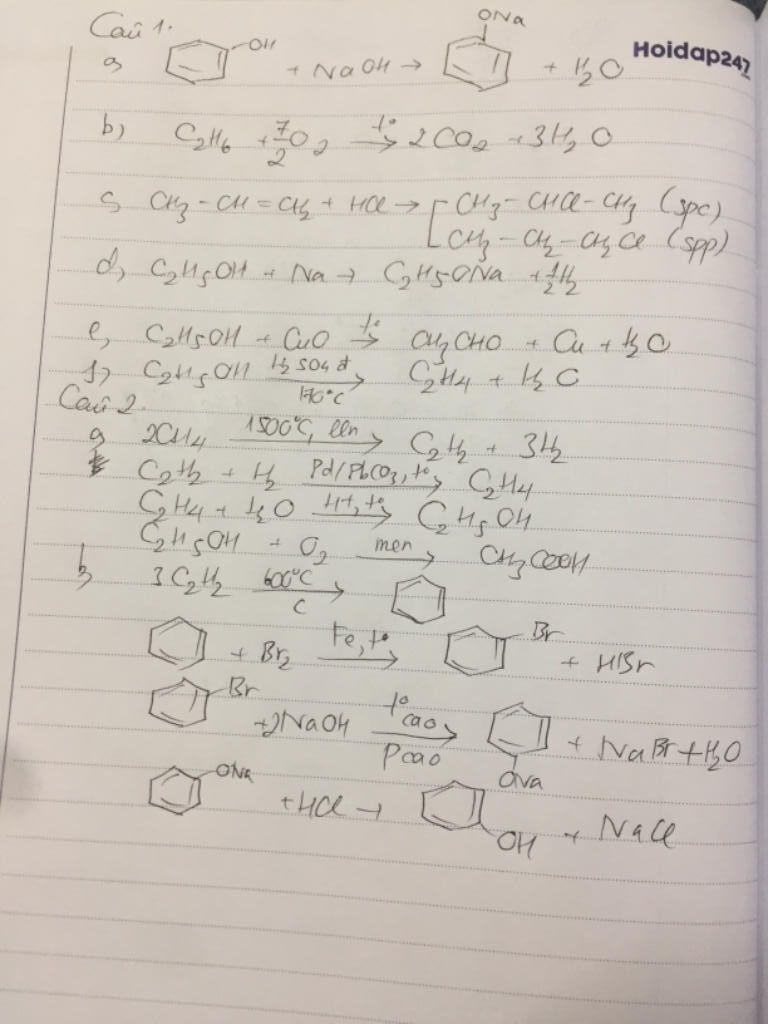 Câu 1.
Hoidap247
a, OH + NaOH → ONa + H2O
b) C2H6 + 7/2 O2 t° → 2CO2 + 3H2O
c, CH3 - CH = CH2 + HCl → [ CH3 - CHCl - CH3 (spc)
CH3 - CH2 - CH2Cl (spp)
d, C2H5OH + Na → C2H5ONa + 1/2 H2
e, C2H5OH + CuO t° → CH3CHO + Cu + H2O
f, C2H5OH H2SO4 đ → 170°C C2H4 + H2O
Câu 2.
a, 2CH4 1500°C, lln → C2H2 + 3H2
C2H2 + H2 Pd/PbCO3, t° → C2H4
C2H4 + H2O H+, t° → C2H5OH
C2H5OH + O2 men → CH3COOH
b, 3C2H2 600°C → C
+ Br2 Fe, t° → Br + HBr
Br + 2NaOH t° cao → P cao ONa + NaBr + H2O
ONa + HCl → OH + NaCl